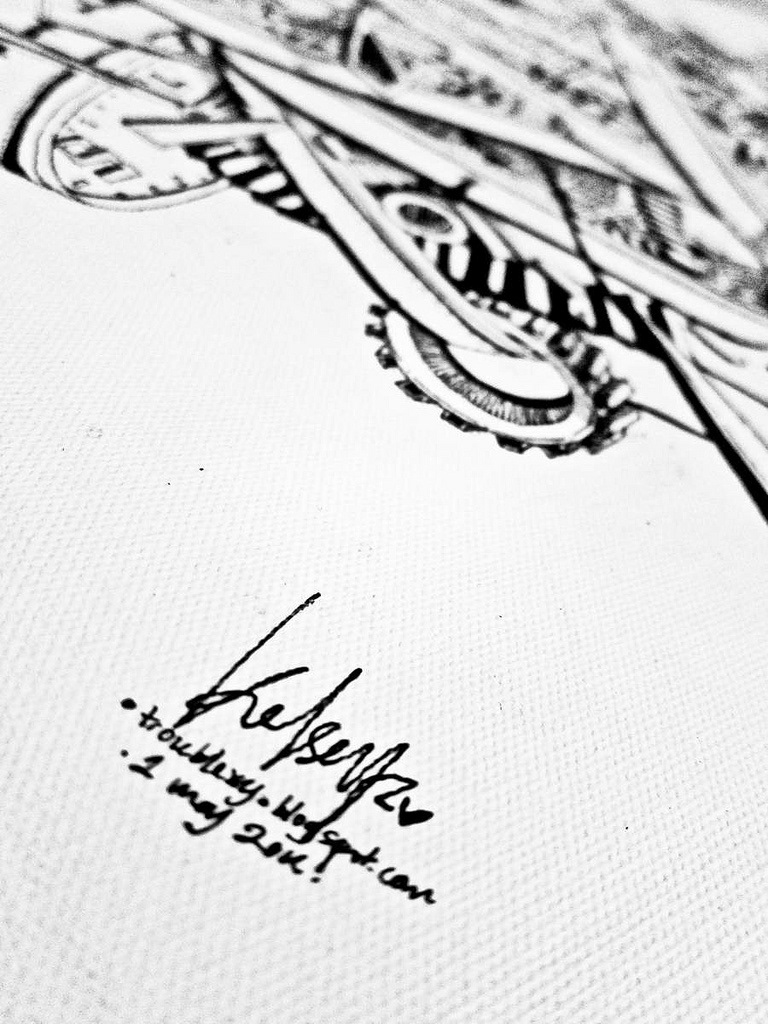 Kelsey
.troublexy.blogspot.com
.1 may 2012!